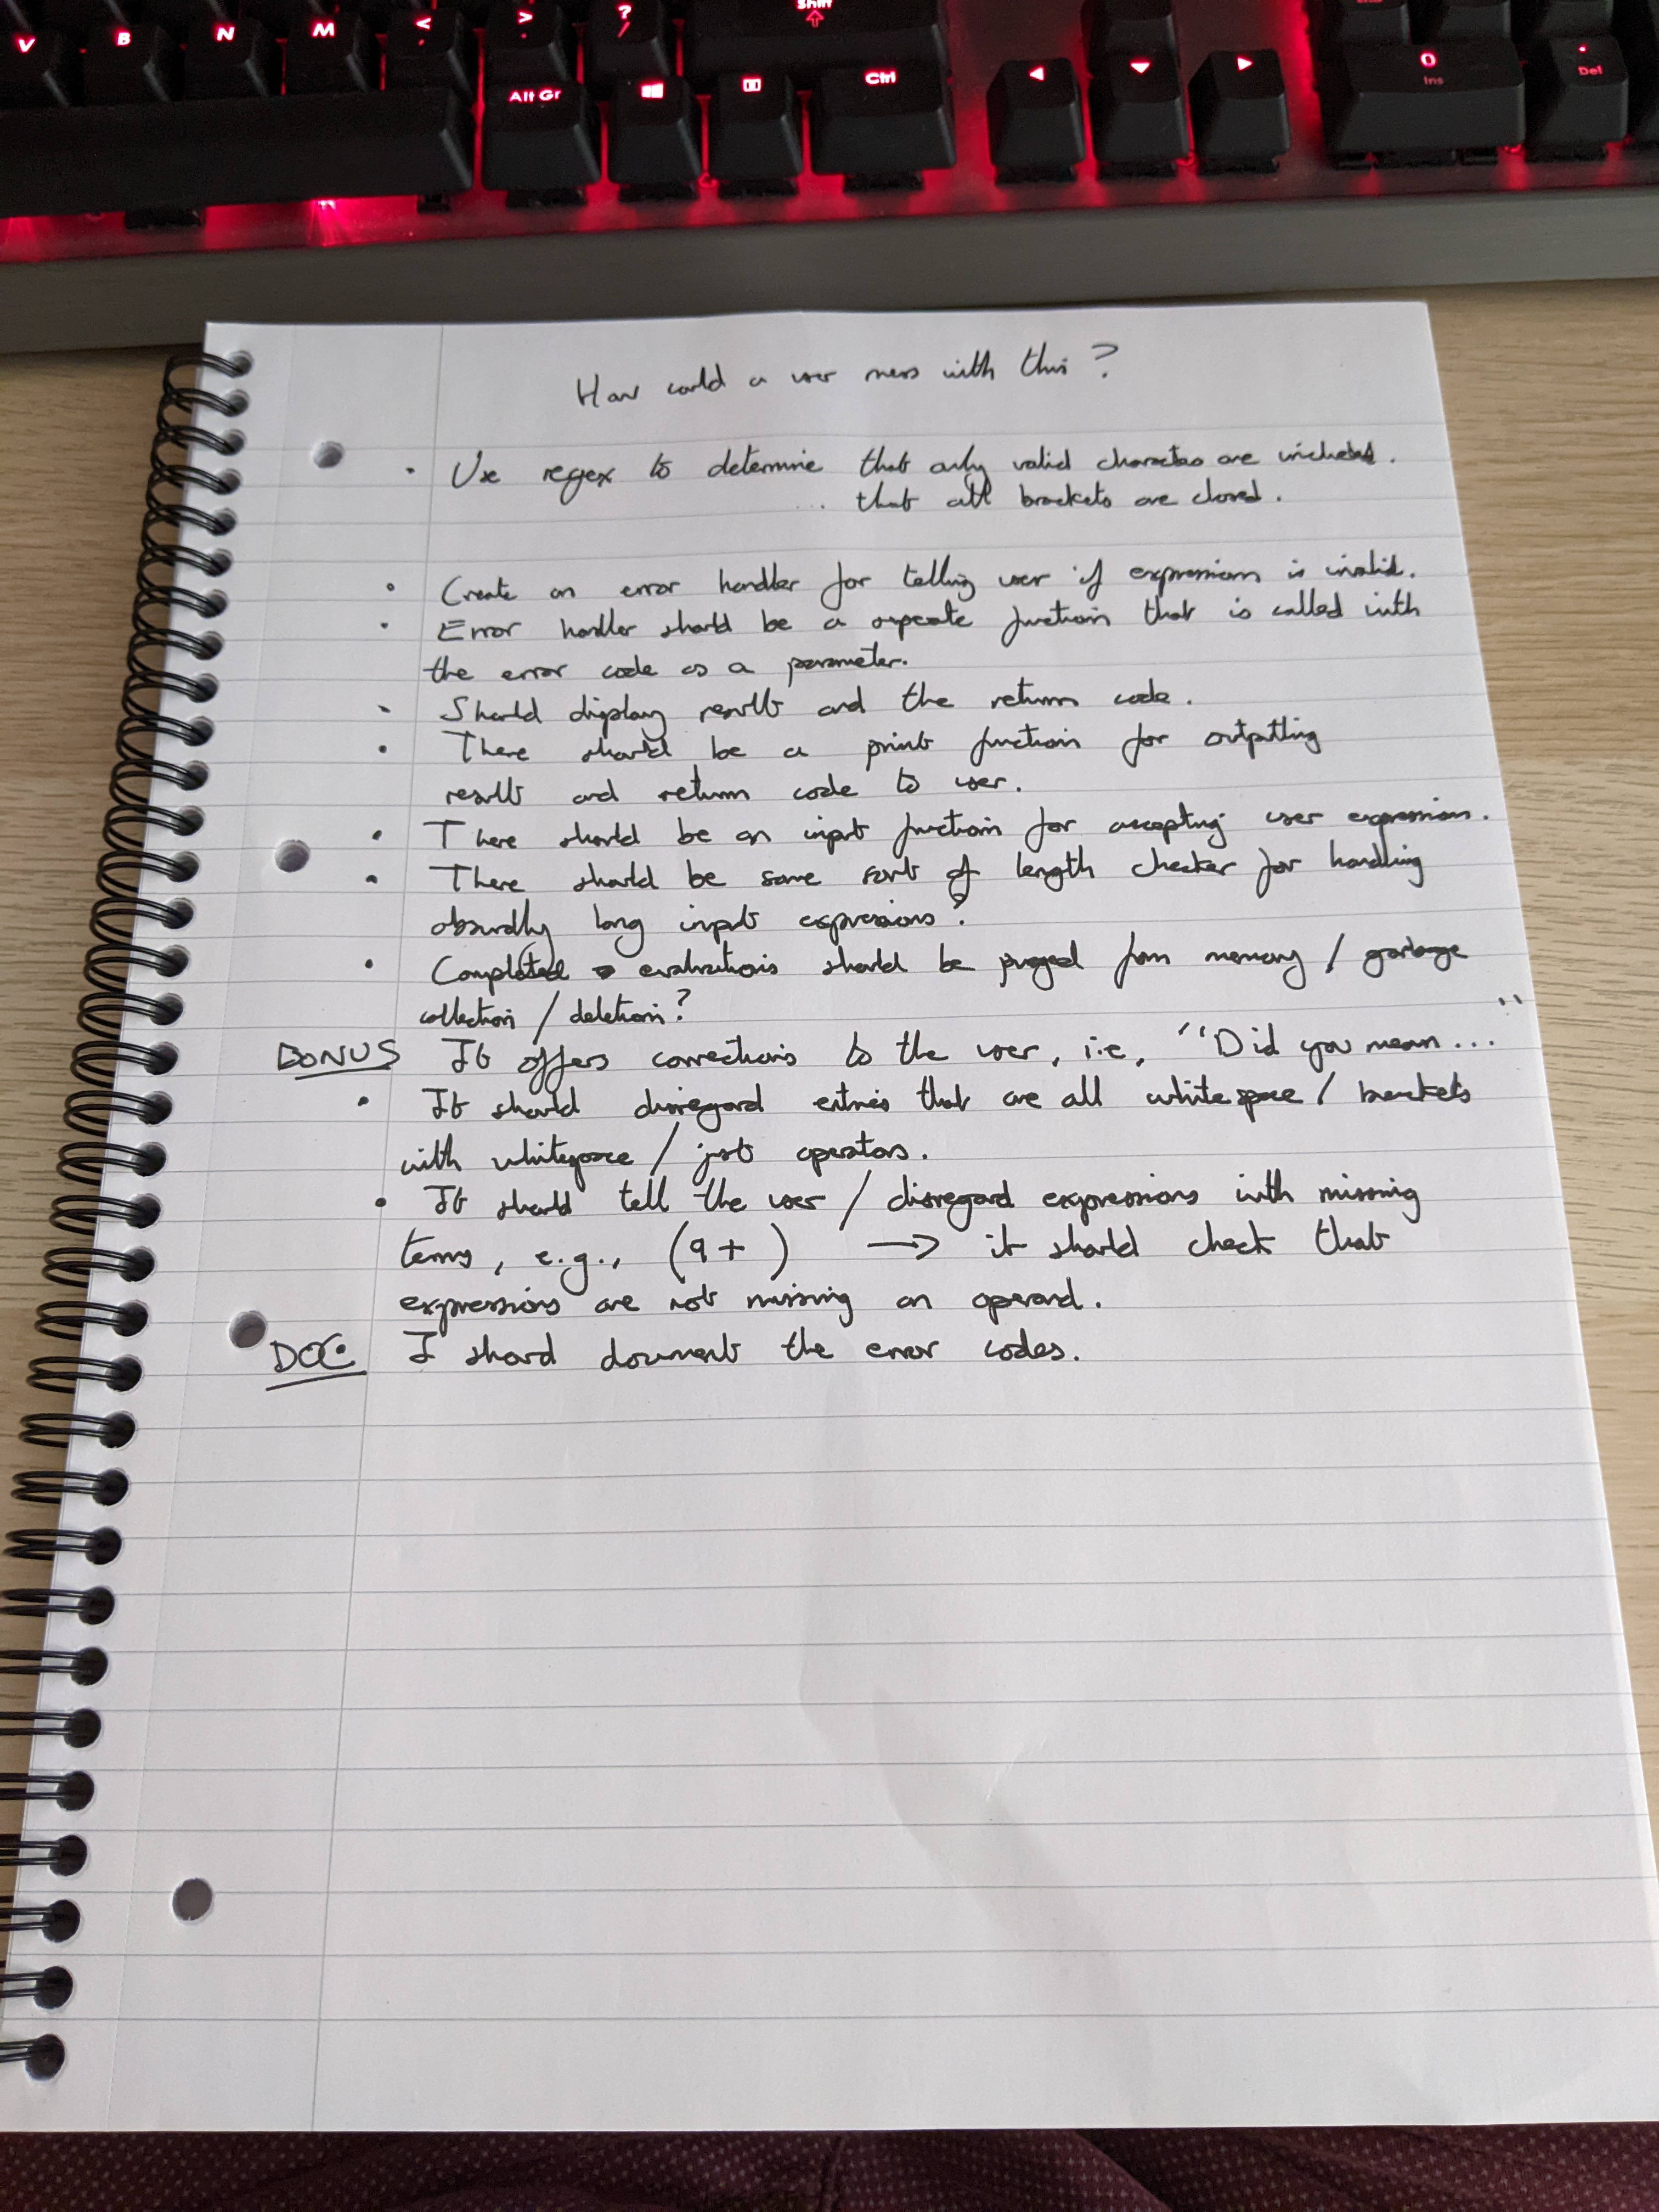 V B N M < , > . ? / Shift
Alt Gr Ctrl 0 Ins . Del
How could a user mess with this?
• Use regex to determine that only valid characters are included.
... that all brackets are closed.
• Create an error handler for telling user if expression is invalid.
• Error handler should be a seperate function that is called with
the error code as a parameter.
• Should display result and the return code.
• There should be a print function for outputting
result and return code to user.
• There should be an input function for accepting user expression.
• There should be some sort of length checker for handling
absurdly long input expressions?
• Completed evaluations should be purged from memory / garbage
collection / deletion?
BONUS It offers corrections to the user, i.e, "Did you mean..."
• It should disregard entries that are all whitespace / brackets
with whitespace / just operators.
• It should tell the user / disregard expressions with missing
terms, e.g., (9+ ) → it should check that
expressions are not missing an operand.
DOC I should document the error codes.